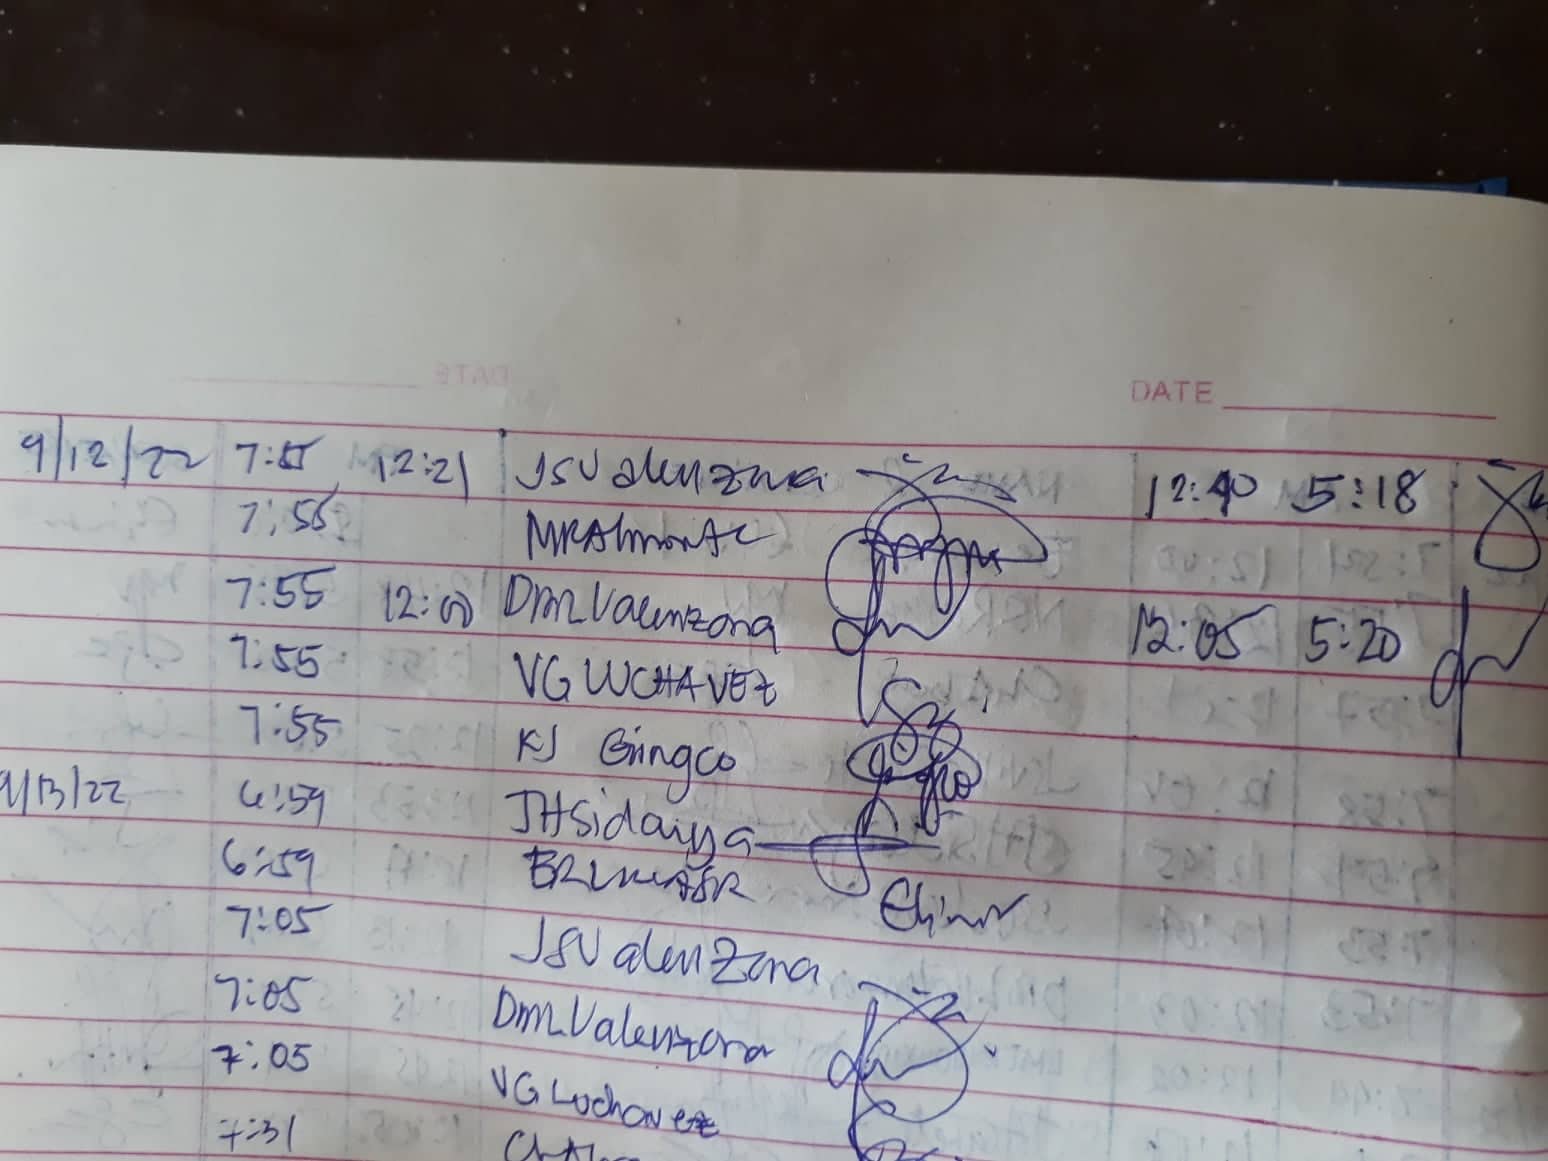 DATE
9/12/22 7:55 12:21 JSValenzona 12:40 5:18
7:55 MRAlmonte
7:55 12:00 DMValenzona 12:05 5:20
7:55 VG LUCHAVEZ
7:55 KJ Gingco
9/13/22 6:59 JHSidaiya
6:59
7:05 JSValenzona
7:05 DMValenzona
7:05 VG Luchavez
7:31